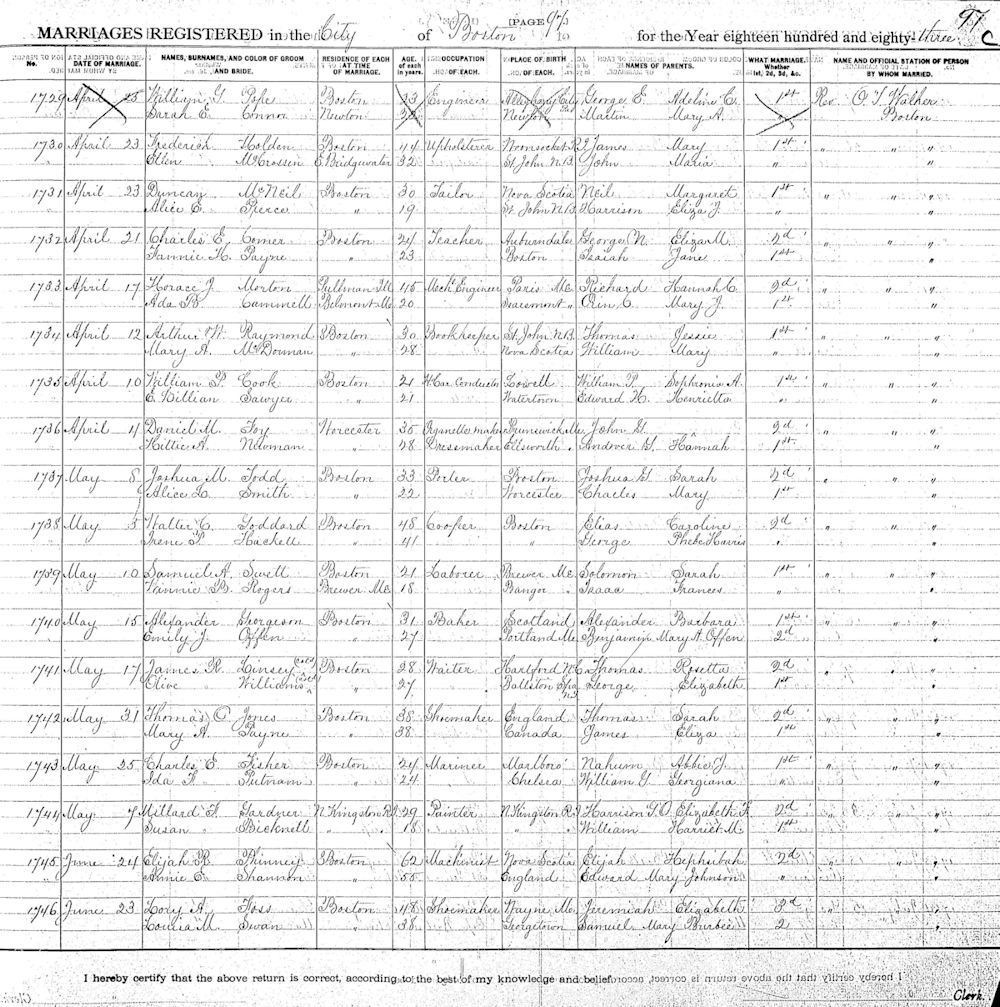 (PAGE 97)
97
C
MARRIAGES REGISTERED in the City of Boston for the Year eighteen hundred and eighty-three
No. DATE OF MARRIAGE. NAMES, SURNAMES, AND COLOR OF GROOM AND BRIDE. RESIDENCE OF EACH AT TIME OF MARRIAGE. AGE. of each in years OCCUPATION OF EACH. PLACE OF BIRTH OF EACH. NAMES OF PARENTS. WHAT MARRIAGE. Whether 1st, 2d, 3d, &c. NAME AND OFFICIAL STATION OF PERSON BY WHOM MARRIED.
1729 April 25 William G. Pope Boston 23 Engineer Allegheny City Pa George E. Adeline C. 1st Rev O. T. Walker
Sarah E. Connor Newton Newton Martin Mary A. " Boston
1730 April 23 Frederick Holden Boston 44 Upholsterer Woonsocket R.I. James Mary 1st " " "
Ellen McCrossin E Bridgwater 32 St John N.B. John Maria " "
1731 April 23 Duncan McNeil Boston 30 Tailor Nova Scotia Neil Margaret 1st " " "
Alice E. Pierce " 19 St. John N.B. Harrison Eliza J. " "
1732 April 21 Charles E. Comer Boston 24 Teacher Auburndale George N. Eliza M. 2d " " "
Fannie H. Payne " 23 Boston Isaiah Jane 1st "
1733 April 17 Horace J. Morton Pullman Ill 45 Mech. Engineer Paris Me. Richard Hannah C. 2d " " "
Ada B. Cammett Belmont Me 20 Searsmont " Orin C. Mary J. 1st "
1734 April 12 Arthur W. Raymond Boston 30 Bookkeeper St. John N.B. Thomas Jessie 1st " " "
Mary A. McDorman " 28 Nova Scotia William Mary " "
1735 April 10 William P. Cook Boston 21 H. Car Conductor Lowell William P. Sophronia A. 1st " " "
E. Lillian Sawyer " 21 Watertown Edward H. Henrietta " "
1736 April 4 Daniel M. Foy Worcester 35 Organette maker Brunswick Me John G. 2d " " "
Kittie A. Newman " 28 Dressmaker Ellsworth " Andrew G. Hannah 1st "
1737 May 8 Joshua M. Todd Boston 33 Porter Boston Joshua G Sarah 2d " " "
Alice L. Smith " 22 Worcester Charles Mary 1st "
1738 May 5 Walter C. Goddard Boston 48 Cooper Boston Elias Caroline 2d " " "
Irene P. Hackett " 41 " George Phebe Harris " "
1739 May 10 Samuel A. Swett Boston 21 Laborer Brewer Me. Solomon Sarah 1st " " "
Winnie B. Rogers Brewer Me 18 Bangor " Isaac Frances " "
1740 May 15 Alexander Georgeson Boston 31 Baker Scotland Alexander Barbara 1st " " "
Emily J. Offen " 27 Portland Me. Benjamin Mary A. Offen 2d "
1741 May 17 James R. Kinsey (Col'd) Boston 28 Waiter Hartford N.C. Thomas Rosetta 2d " " "
Olive Williams (Col'd) " 27 Ballston Spa N.Y. George Elizabeth 1st "
1742 May 31 Thomas O. Jones Boston 38 Shoemaker England Thomas Sarah 2d " " "
Mary A. Payne " 38 Canada James Eliza 1st "
1743 May 25 Charles E. Fisher Boston 24 Mariner Marlboro' Nahum Abbie J. 1st " " "
Ida F. Putnam " 24 Chelsea William G. Georgiana " "
1744 May 7 Millard F. Gardner N Kingston R.I. 29 Painter N. Kingston R.I. Harrison G.O. Elizabeth F. 2d " " "
Susan " Bicknell " " 18 " " William Harriet M. 1st "
1745 June 24 Elijah R. Phinney Boston 62 Machinist Nova Scotia Elijah Hephsibah 2d " " "
Annie E. Shannon " 55 England Edward Mary Johnson " "
1746 June 23 Lory A. Foss Boston 48 Shoemaker Wayne Me. Jeremiah Elizabeth 3d " " "
Louisa M. Swan " 38 Georgetown " Samuel Mary Burbee 2 "
I hereby certify that the above return is correct, according to the best of my knowledge and belief.
Clerk.